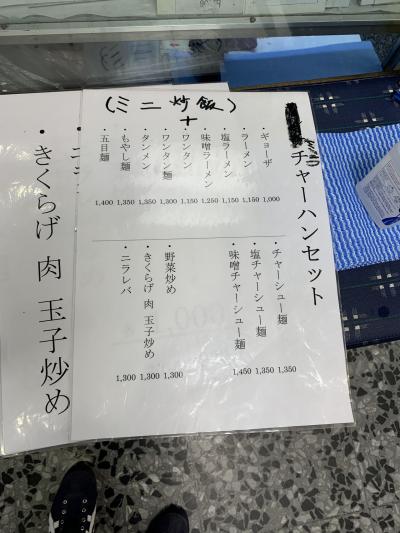 ミニチャーハンセット
(ミニ炒飯)
+
・ギョーザ 1,000
・ラーメン 1,150
・塩ラーメン 1,150
・味噌ラーメン 1,250
・ワンタン 1,150
・ワンタン麺 1,300
・タンメン 1,350
・もやし麺 1,350
・五目麺 1,400
・チャーシュー麺 1,350
・塩チャーシュー麺 1,350
・味噌チャーシュー麺 1,450
・野菜炒め 1,300
・きくらげ 肉 玉子炒め 1,300
・ニラレバ 1,300
・きくらげ 肉 玉子炒め